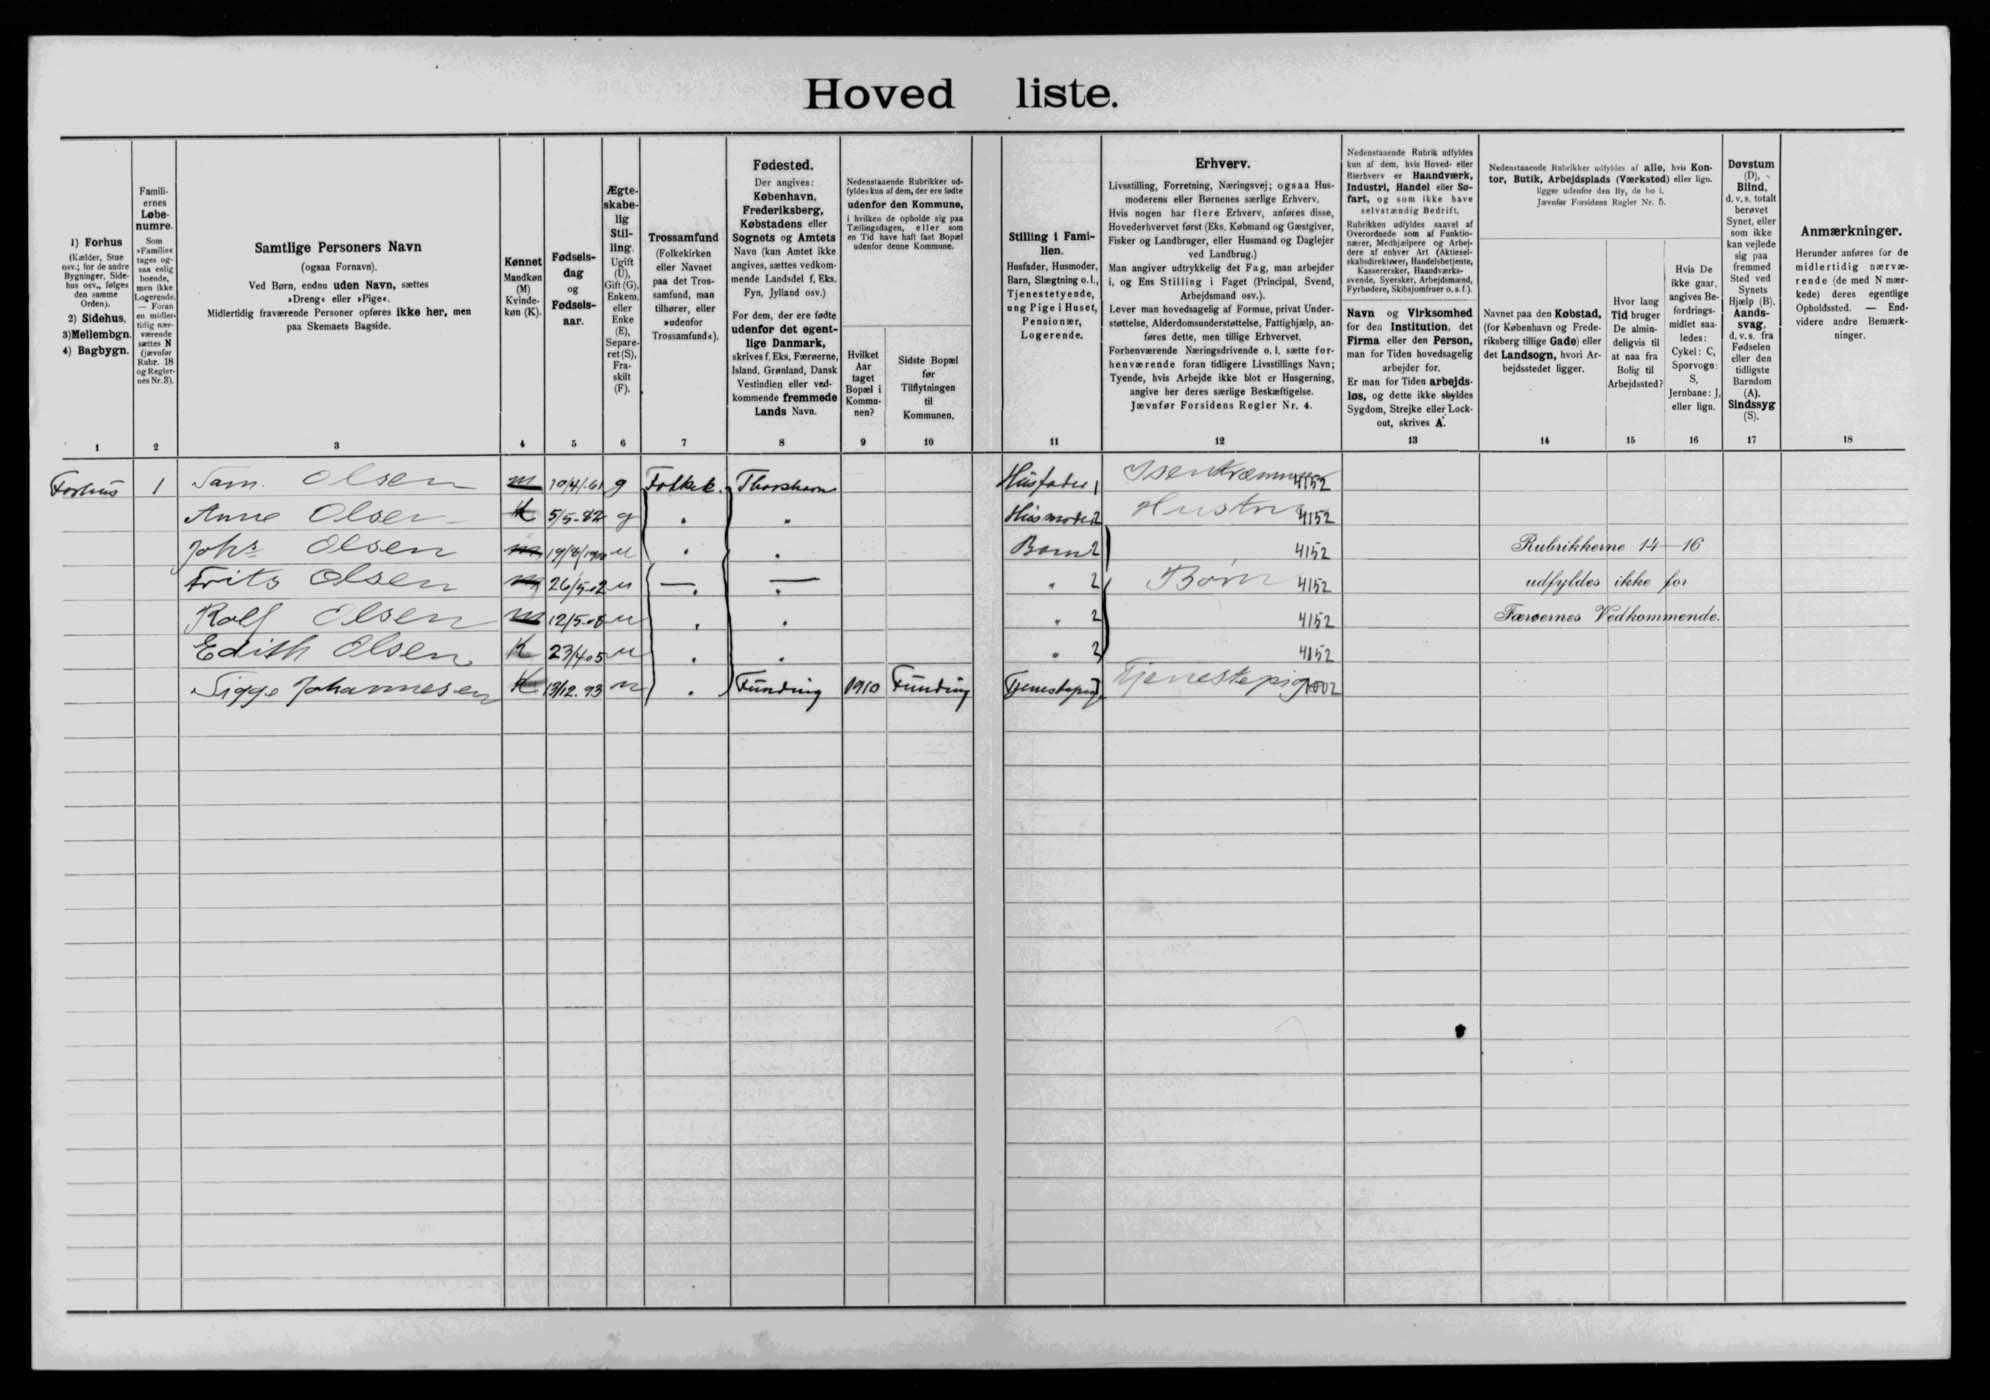 Hoved liste.
1) Forhus
(Kælder, Stue
osv.; for de andre
Bygninger, Side-
hus osv., følges
den samme
Orden).
2) Sidehus.
3) Mellembgn.
4) Bagbygn.
Famili-
ernes
Løbe-
numre.
Som
»Familie«
tages og-
saa enlig
boende,
men ikke
Logerende.
— Foran
en midler-
tidig nær-
værende
sættes N
(jævnfør
Rubr. 18
og Regler-
nes Nr. 3).
Samtlige Personers Navn
(ogsaa Fornavn).
Ved Børn, endnu uden Navn, sættes
»Dreng« eller »Pige«.
Midlertidig fraværende Personer opføres ikke her, men
paa Skemaets Bagside.
Kønnet
Mandkøn
(M)
Kvinde-
køn (K).
Fødsels-
dag
og
Fødsels-
aar.
Ægte-
skabe-
lig
Stil-
ling.
Ugift
(U),
Gift (G),
Enkem.
eller
Enke
(E),
Separe-
ret (S),
Fra-
skilt
(F).
Trossamfund
(Folkekirken
eller Navnet
paa det Tros-
samfund, man
tilhører, eller
»udenfor
Trossamfund«).
Fødested.
Der angives:
København,
Frederiksberg,
Købstadens eller
Sognets og Amtets
Navn (kan Amtet ikke
angives, sættes vedkom-
mende Landsdel f. Eks.
Fyn, Jylland osv.)
For dem, der ere fødte
udenfor det egent-
lige Danmark,
skrives f. Eks. Færøerne,
Island, Grønland, Dansk
Vestindien eller ved-
kommende fremmede
Lands Navn.
Nedenstaaende Rubrikker ud-
fyldes kun af dem, der ere fødte
udenfor den Kommune,
i hvilken de opholde sig paa
Tællingsdagen, eller som
en Tid have haft fast Bopæl
udenfor denne Kommune.
Hvilket
Aar
taget
Bopæl i
Kommu-
nen?
Sidste Bopæl
før
Tilflytningen
til
Kommunen.
Stilling i Fami-
lien.
Husfader, Husmoder,
Barn, Slægtning o.l.,
Tjenestetyende,
ung Pige i Huset,
Pensionær,
Logerende.
Erhverv.
Livsstilling, Forretning, Næringsvej; ogsaa Hus-
moderens eller Børnenes særlige Erhverv.
Hvis nogen har flere Erhverv, anføres disse,
Hovederhvervet først (Eks. Købmand og Gæstgiver,
Fisker og Landbruger, eller Husmand og Daglejer
ved Landbrug.)
Man angiver udtrykkelig det Fag, man arbejder
i, og Ens Stilling i Faget (Principal, Svend,
Arbejdsmand osv.).
Lever man hovedsagelig af Formue, privat Under-
støttelse, Alderdomsunderstøttelse, Fattighjælp, an-
føres dette, men tillige Erhvervet.
Forhenværende Næringsdrivende o. l. sætte for-
henværende foran tidligere Livsstillings Navn;
Tyende, hvis Arbejde ikke blot er Husgerning,
angive her deres særlige Beskæftigelse.
Jævnfør Forsidens Regler Nr. 4.
Nedenstaaende Rubrik udfyldes
kun af dem, hvis Hoved- eller
Bierhverv er Haandværk,
Industri, Handel eller Sø-
fart, og som ikke have
selvstændig Bedrift.
Rubrikken udfyldes saavel af
Overordnede som af Funktio-
nærer, Medhjælpere og Arbej-
dere af enhver Art (Aktiesel-
skabsdirektører, Handelsbetjente,
Kassererskér, Haandværks-
svende, Syersker, Arbejdsmænd,
Fyrbødere, Skibsjomfruer o. s. f.).
Navn og Virksomhed
for den Institution, det
Firma eller den Person,
man for Tiden hovedsagelig
arbejder for.
Er man for Tiden arbejds-
løs, og dette ikke skyldes
Sygdom, Strejke eller Lock-
out, skrives A.
Nedenstaaende Rubrikker udfyldes af alle, hvis Kon-
tor, Butik, Arbejdsplads (Værksted) eller lign.
ligger udenfor den By, de bo i.
Jævnfør Forsidens Regler Nr. 5.
Navnet paa den Købstad,
(for København og Frede-
riksberg tillige Gade) eller
det Landsogn, hvori Ar-
bejdsstedet ligger.
Hvor lang
Tid bruger
De almin-
deligvis til
at naa fra
Bolig til
Arbejdssted?
Hvis De
ikke gaar,
angives Be-
fordrings-
midlet saa-
ledes:
Cykel: C,
Sporvogn:
S,
Jernbane: J,
eller lign.
Døvstum
(D),
Blind,
d. v. s. totalt
berøvet
Synet, eller
som ikke
kan vejlede
sig paa
fremmed
Sted ved
Synets
Hjælp (B).
Aands-
svag,
d. v. s. fra
Fødselen
eller den
tidligste
Barndom
(A).
Sindssyg
(S).
Anmærkninger.
Herunder anføres for de
midlertidig nærvæ-
rende (de med N mær-
kede) deres egentlige
Opholdssted. — End-
videre andre Bemærk-
ninger.
1 2 3 4 5 6 7 8 9 10 11 12 13 14 15 16 17 18
Forhus 1 Sam. Olsen m 10/4/-61 g Folkek. Thorshavn Husfader 1 Isenkræmmer 4152
Anna Olsen K 5/5-82 g " " Husmoder 2 Hustru 4152
Johs Olsen m " " Barn 2 4152 Rubrikkerne 14—16
Frits Olsen m 26/5-02 u — — " 2 Børn 4152 udfyldes ikke for
Rolf Olsen m u " " " 2 4152 Færøernes Vedkommende.
Edith Olsen K 23/4 05 u " " " 2 4152
Sigge Johannesen K 13/12. 93 u " Funding 1910 Funding Tjenestepige Tjenestepige